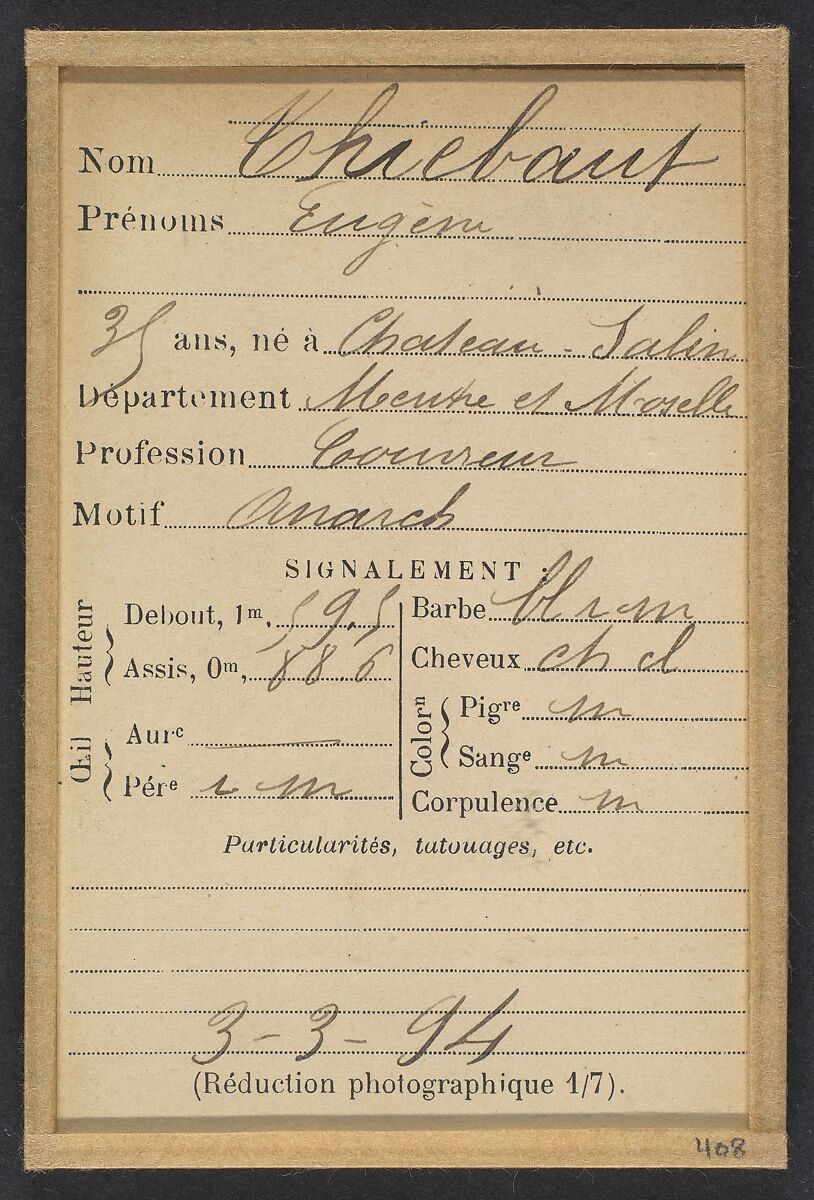 Nom Thiebaut
Prénoms Eugène
35 ans, né à Chateau-Salin
Département Meurthe et Moselle
Profession Couvreur
Motif Anarch
SIGNALEMENT :
Hauteur
Debout, 1m, 59.5
Assis, 0m, 88.6
Œil
Aurᶜ —
Pérᵉ r m
Barbe bl r m
Cheveux ch cl
Colorⁿ
Pigʳᵉ m
Sangᵉ m
Corpulence m
Particularités, tatouages, etc.
3-3-94
(Réduction photographique 1/7).
408